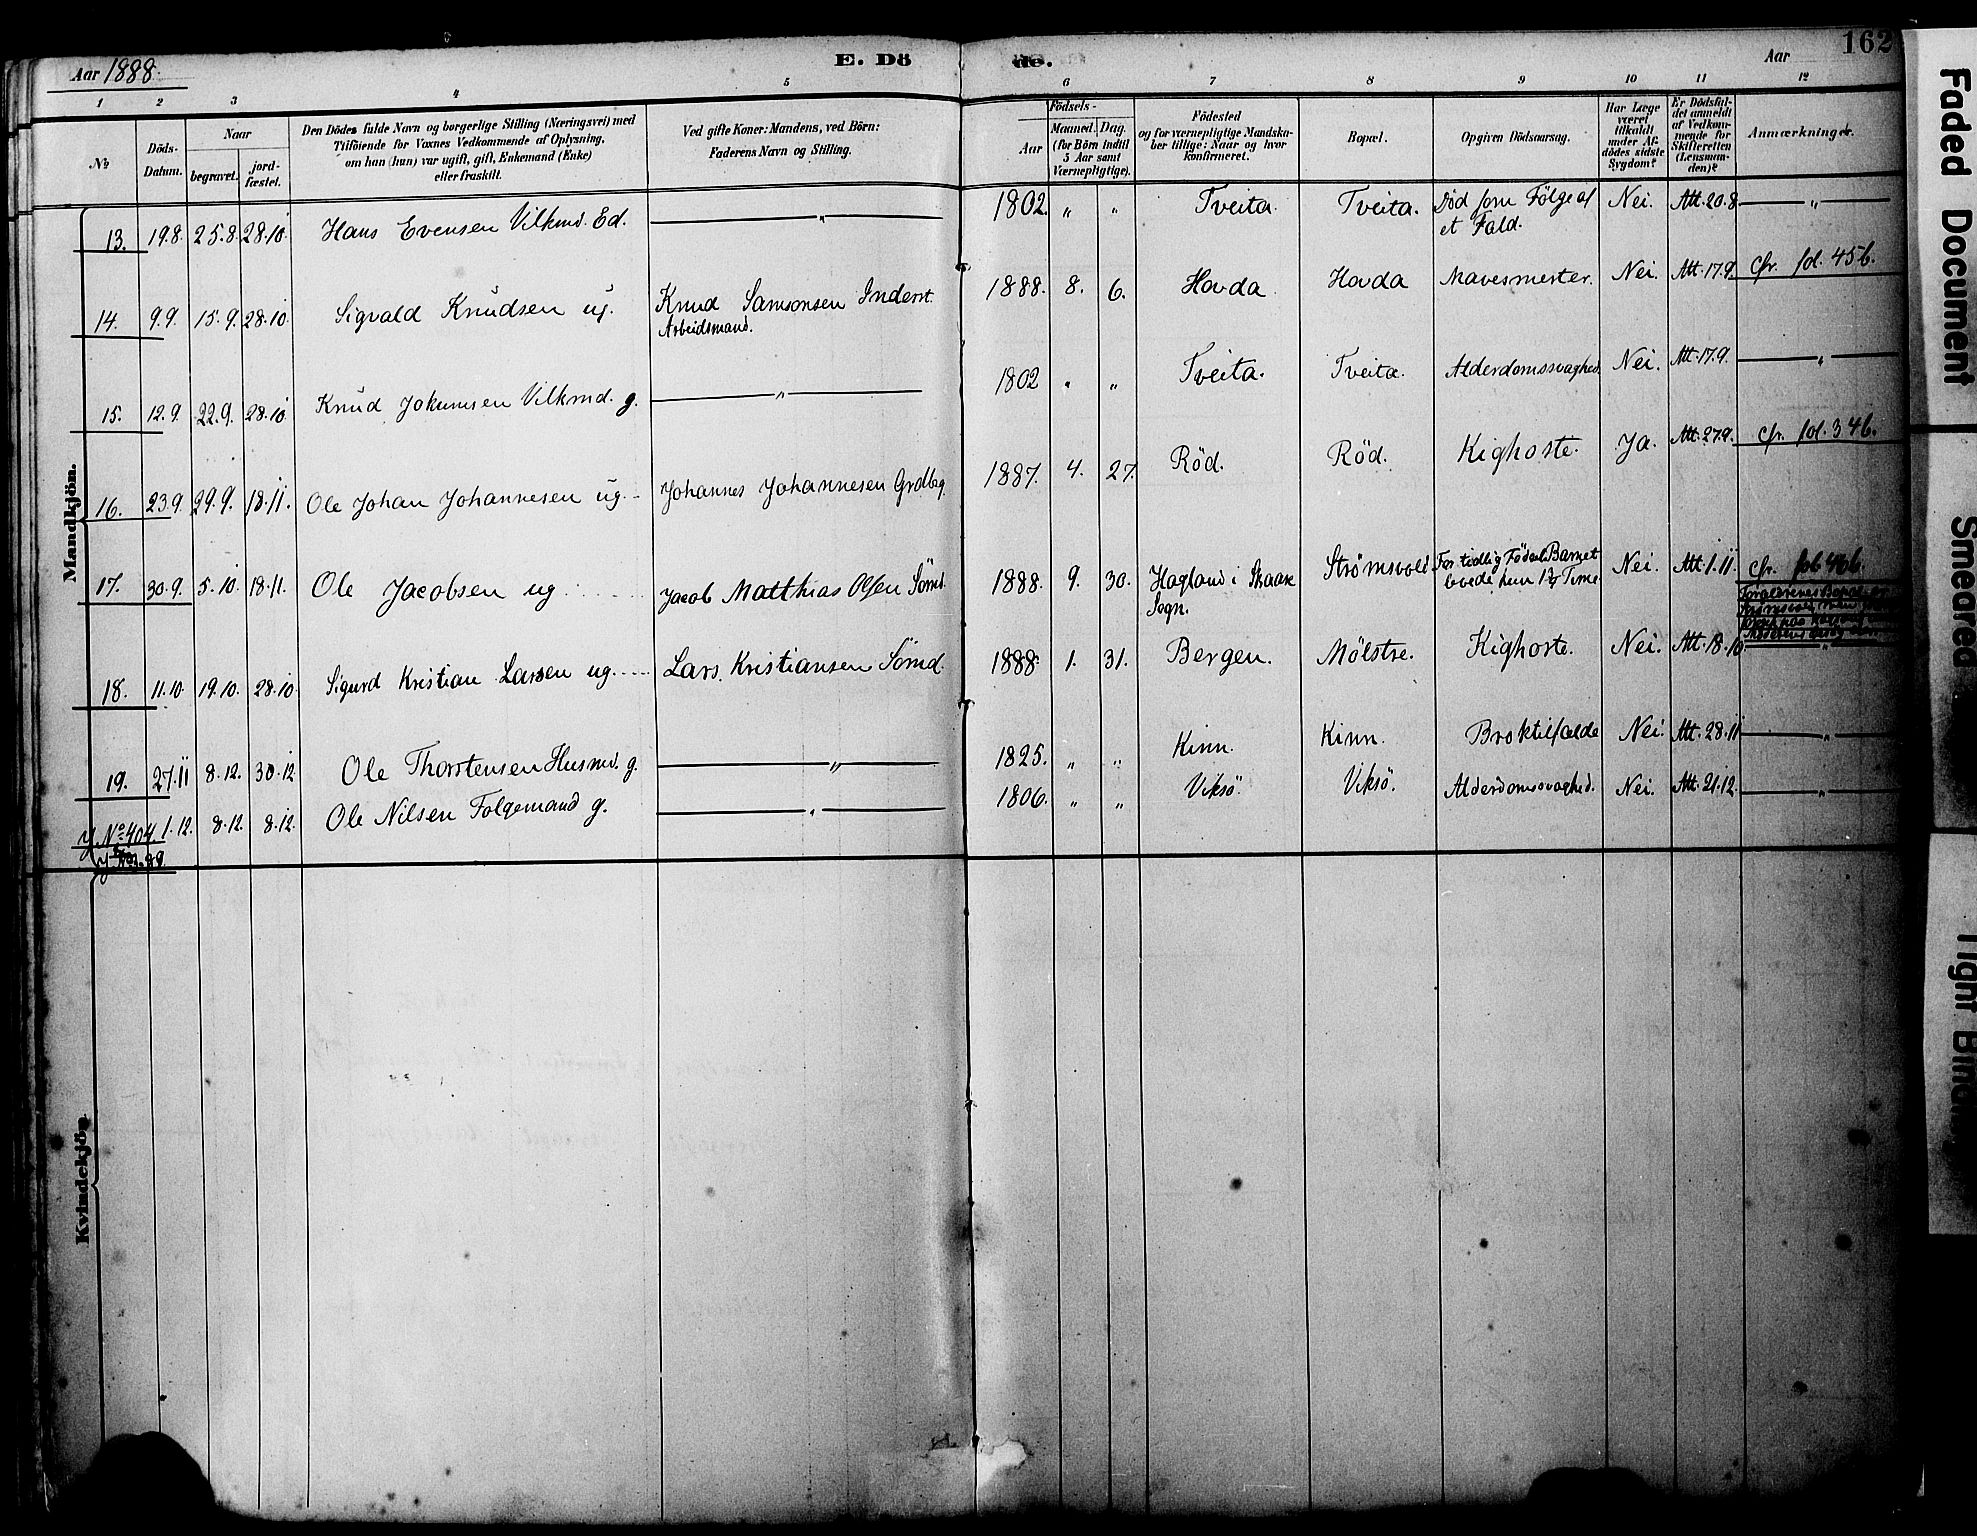 Aar 1888.
E. Döde.
Aar
162
1 2 3 4 5 6 7 8 9 10 11 12
No
Döds-Datum.
Naar
begravet.
jord-fæstet.
Den Dödes fulde Navn og borgerlige Stilling (Næringsvei) med
Tilföiende for Voxnes Vedkommende af Oplysning,
om han (hun) var ugift, gift, Enkemand (Enke)
eller fraskilt.
Ved gifte Koner: Mandens, ved Börn:
Faderens Navn og Stilling.
Födsels-
Aar
Maaned. Dag.
(for Börn indtil
5 Aar samt
Værnepligtige).
Födested
og for værnepligtige Mandska-
ber tillige: Naar og hvor
konfirmeret.
Bopæl.
Opgiven Dödsaarsag.
Har Læge
været
tilkaldt
under Af-
dödes sidste
Sygdom?
Er Dödsfal-
det anmeldt
af Vedkom-
mende for
Skifteretten
(Lensman-
den)?
Anmærkninger.
Mandkjön.
13. 19.8. 25.8. 28.10. Hans Evensen Vilkmd. Ed. — " — 1802. " " Tveita. Tveita. Död som Fölge af Nei. Att. 20.8. — " —
et Fald.
14. 9.9. 15.9. 28.10. Sigvald Knudsen ug. Knud Samsonsen Inderst. 1888. 8. 6. Hovda Hovda Mavesmerter. Nei. Att. 17.9. Cfr. fol. 45b.
Arbeidsmand.
15. 12.9. 22.9. 28.10. Knud Vilkmd. g. — " — 1802 " " Tveita. Tveita. Alderdomssvaghed. Nei. Att. 17.9. — " —
16. 23.9. 29.9. 18.11. Ole Johan Johannesen ug. Johannes Johannesen Grdbrg. 1887. 4. 27. Röd. Röd. Kighoste. Ja. Att. 27.9. Cfr. fol. 34b.
17. 30.9. 5.10. 18.11. Ole Jacobsen ug. Jacob Matthias Olsen Sömd. 1888. 9. 30. Hagland i Skaare Strømsvold. For tidlig Födsel Barnet Nei. Att. 1.11. Cfr. fol. 46b.
Sogn. levede kun 1½ Time
18. 11.10. 19.10. 28.10. Sigurd Kristian Larsen ug. Lars Kristiansen Sömd. 1888. 1. 31. Bergen. Mölstre. Kighoste. Nei. Att. 18.10. — " —
19. 27.11 8.12. 30.12. Ole Thorstensen Husmd. g. — " — 1825. " " Kinn. Kinn. Broktilfælde Nei. Att. 28.11 — " —
J. No 404. 1.12. 8.12. 8.12. Ole Nilsen Folgemand g. — " — 1806. " " Viksö. Viksö. Alderdomssvaghed. Nei. Att. 21.12. — " —
Kvindekjön.
Faded Document
Smeared
Tight Bind